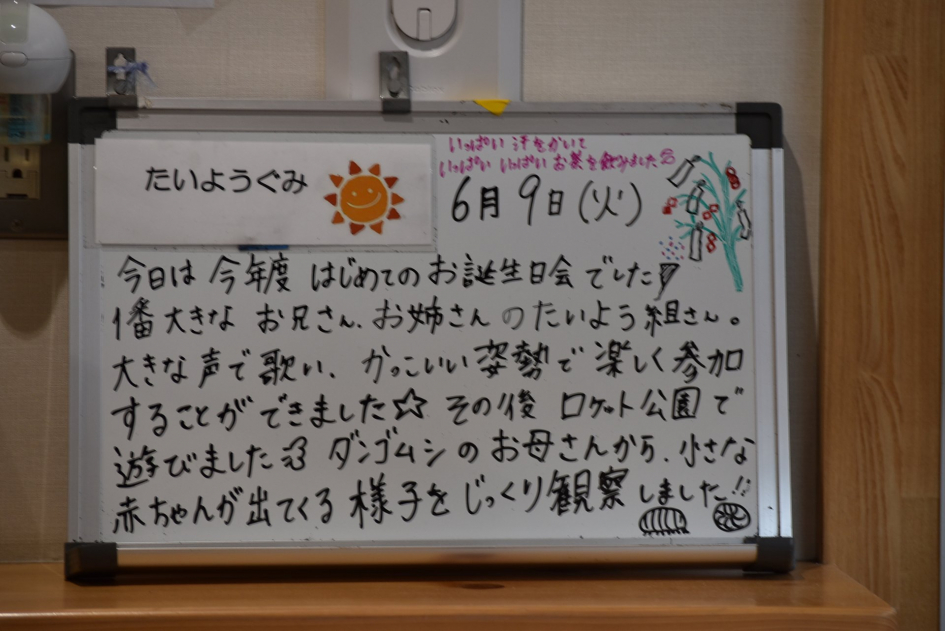 たいようぐみ
いっぱい 汗をかいて
いっぱい いっぱい お茶を飲みました
6月 9日 (火)
今日は 今年度 はじめての お誕生日会 でした
1番 大きな お兄さん、お姉さん の たいよう組さん。
大きな 声で 歌い、 かっこいい 姿勢で 楽しく 参加
することが できました☆ その後 ロケット公園で
遊びました ダンゴムシ の お母さんから、小さな
赤ちゃんが 出てくる 様子を じっくり 観察 しました!!